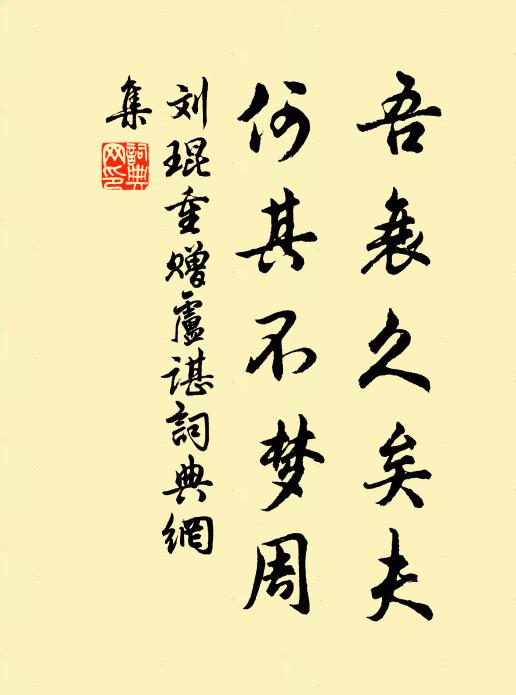 吾衰久矣夫
何其不梦周
刘琨重赠盧谌詞典網
集
詞典
网印